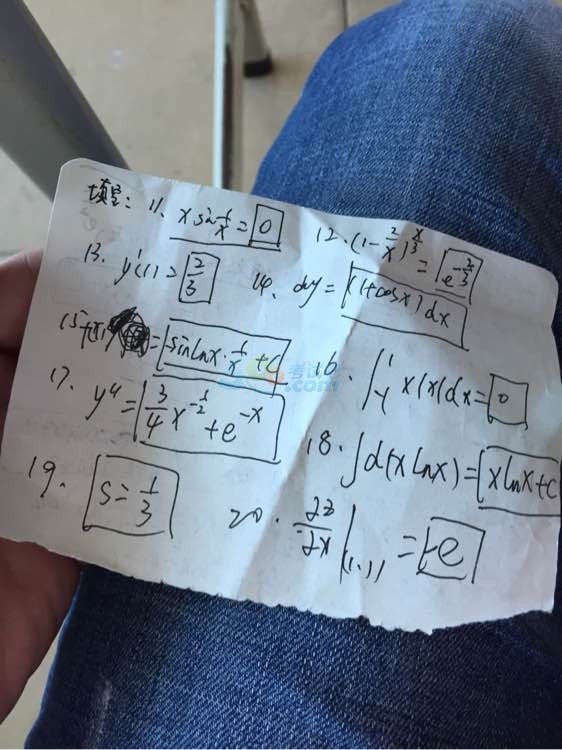 填空: 11. x sin 1/x = 0
12. (1-2/x)^(x/3) = e^(-2/3)
13. y'(1) = 2/3
14. dy = (1+cosx)dx
15. f(x) = sinlnx·1/x+C
16. ∫_{-1}^{1} x|x|dx = 0
17. y" = 3/4 x^(-1/2) + e^(-x)
18. ∫d(xlnx) = xlnx+c
19. S = 1/3
20. ∂z/∂x|(1,1) = -e
考试
.com